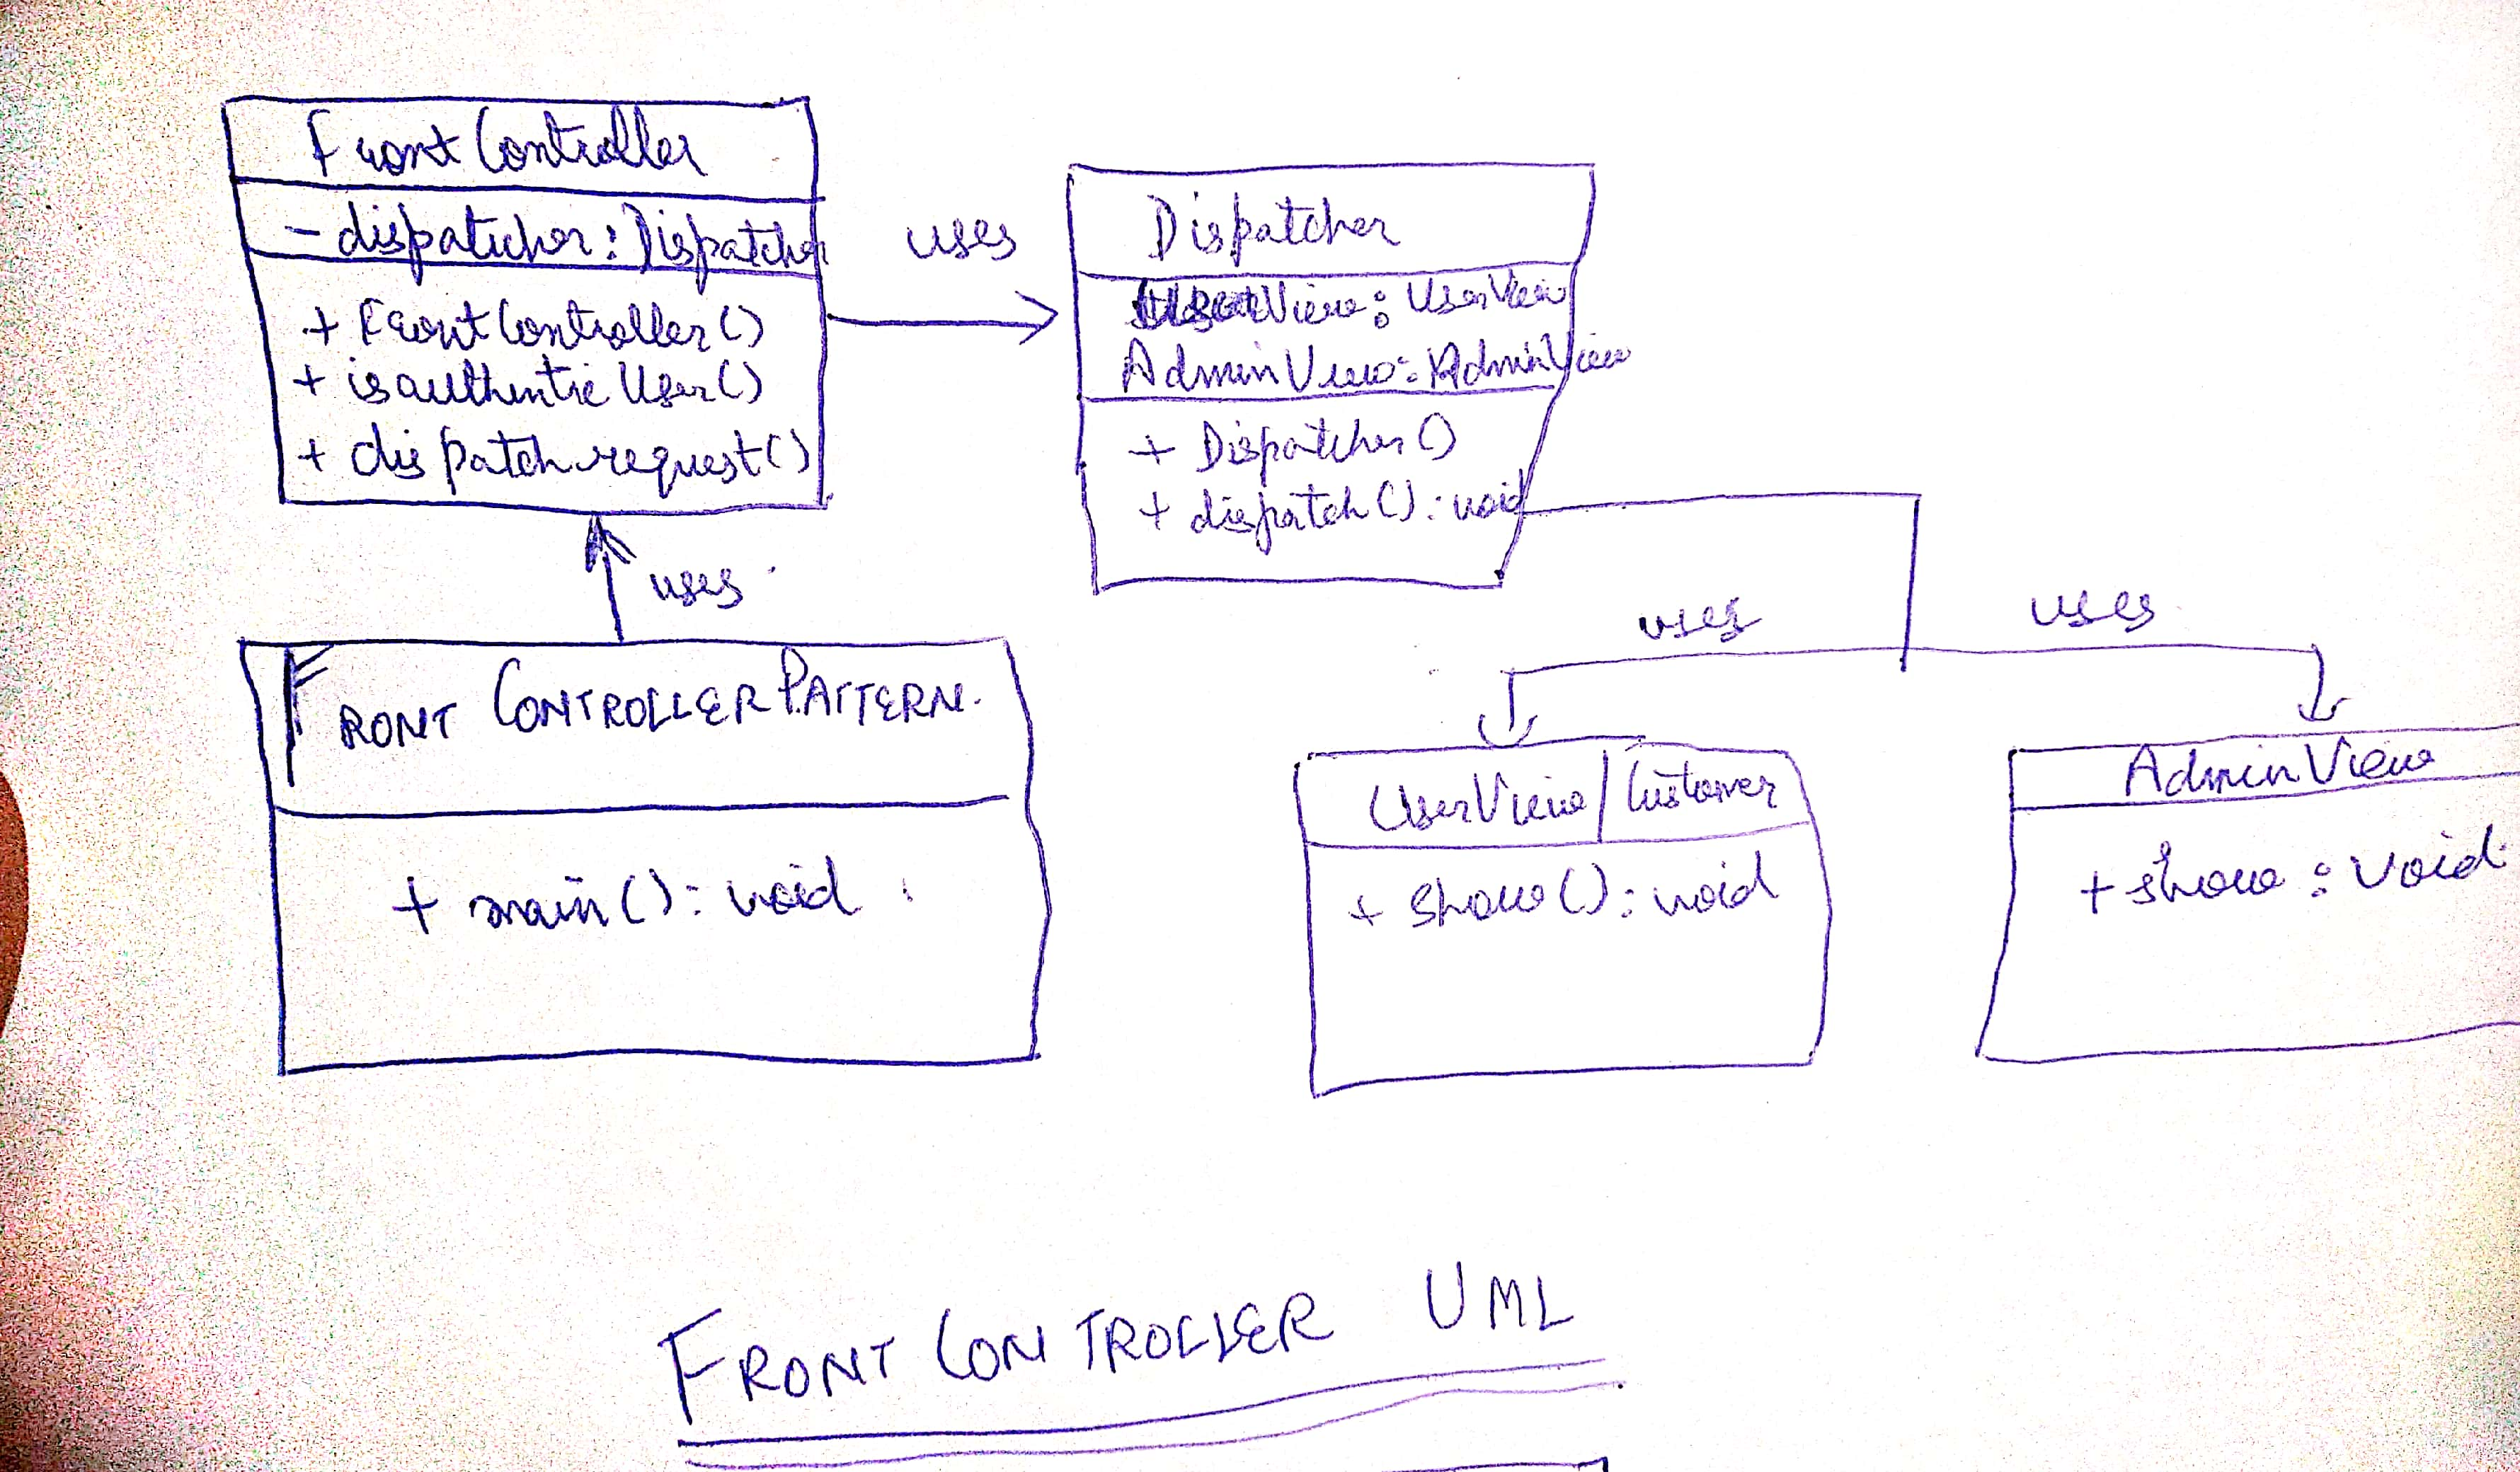 FrontController
- dispatcher : Dispatcher
+ FrontController()
+ isauthentic User()
+ dispatch request()
uses
Dispatcher
UserView : UserView
AdminView : AdminView
+ Dispatcher()
+ dispatch() : void
uses
FRONT CONTROLLER PATTERN.
+ main() : void
uses
uses
UserView / Customer
+ show() : void
AdminView
+ show : void
FRONT CONTROLLER UML